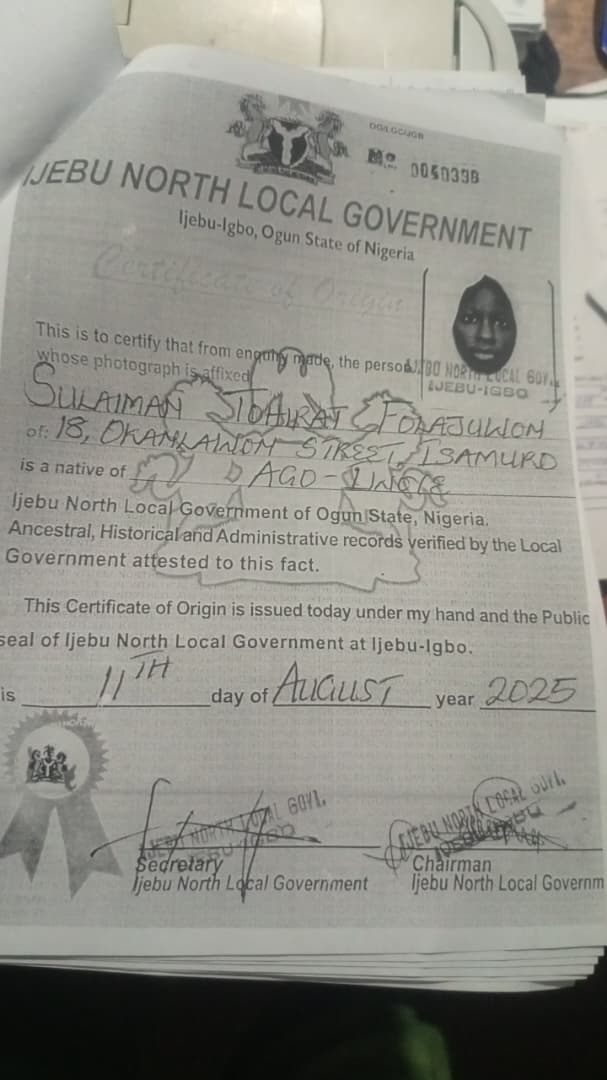 OG/LGC/IJGB
№ 0050398
IJEBU NORTH LOCAL GOVERNMENT
Ijebu-Igbo, Ogun State of Nigeria
Certificate of Origin
This is to certify that from enquiry made, the person
whose photograph is affixed
IJEBU NORTH LOCAL GOVT.
IJEBU-IGBO
SULAIMAN TOHIRAT
of: 18, STREET, ISAMURO
is a native of AGO-
Ijebu North Local Government of Ogun State, Nigeria.
Ancestral, Historical and Administrative records verified by the Local
Government attested to this fact.
This Certificate of Origin is issued today under my hand and the Public
seal of Ijebu North Local Government at Ijebu-Igbo.
is 11TH day of AUGUST year 2025
IJEBU NORTH LOCAL GOVT.
IJEBU NORTH LOCAL GOVT.
Secretary
Ijebu North Local Government
Chairman
Ijebu North Local Governm